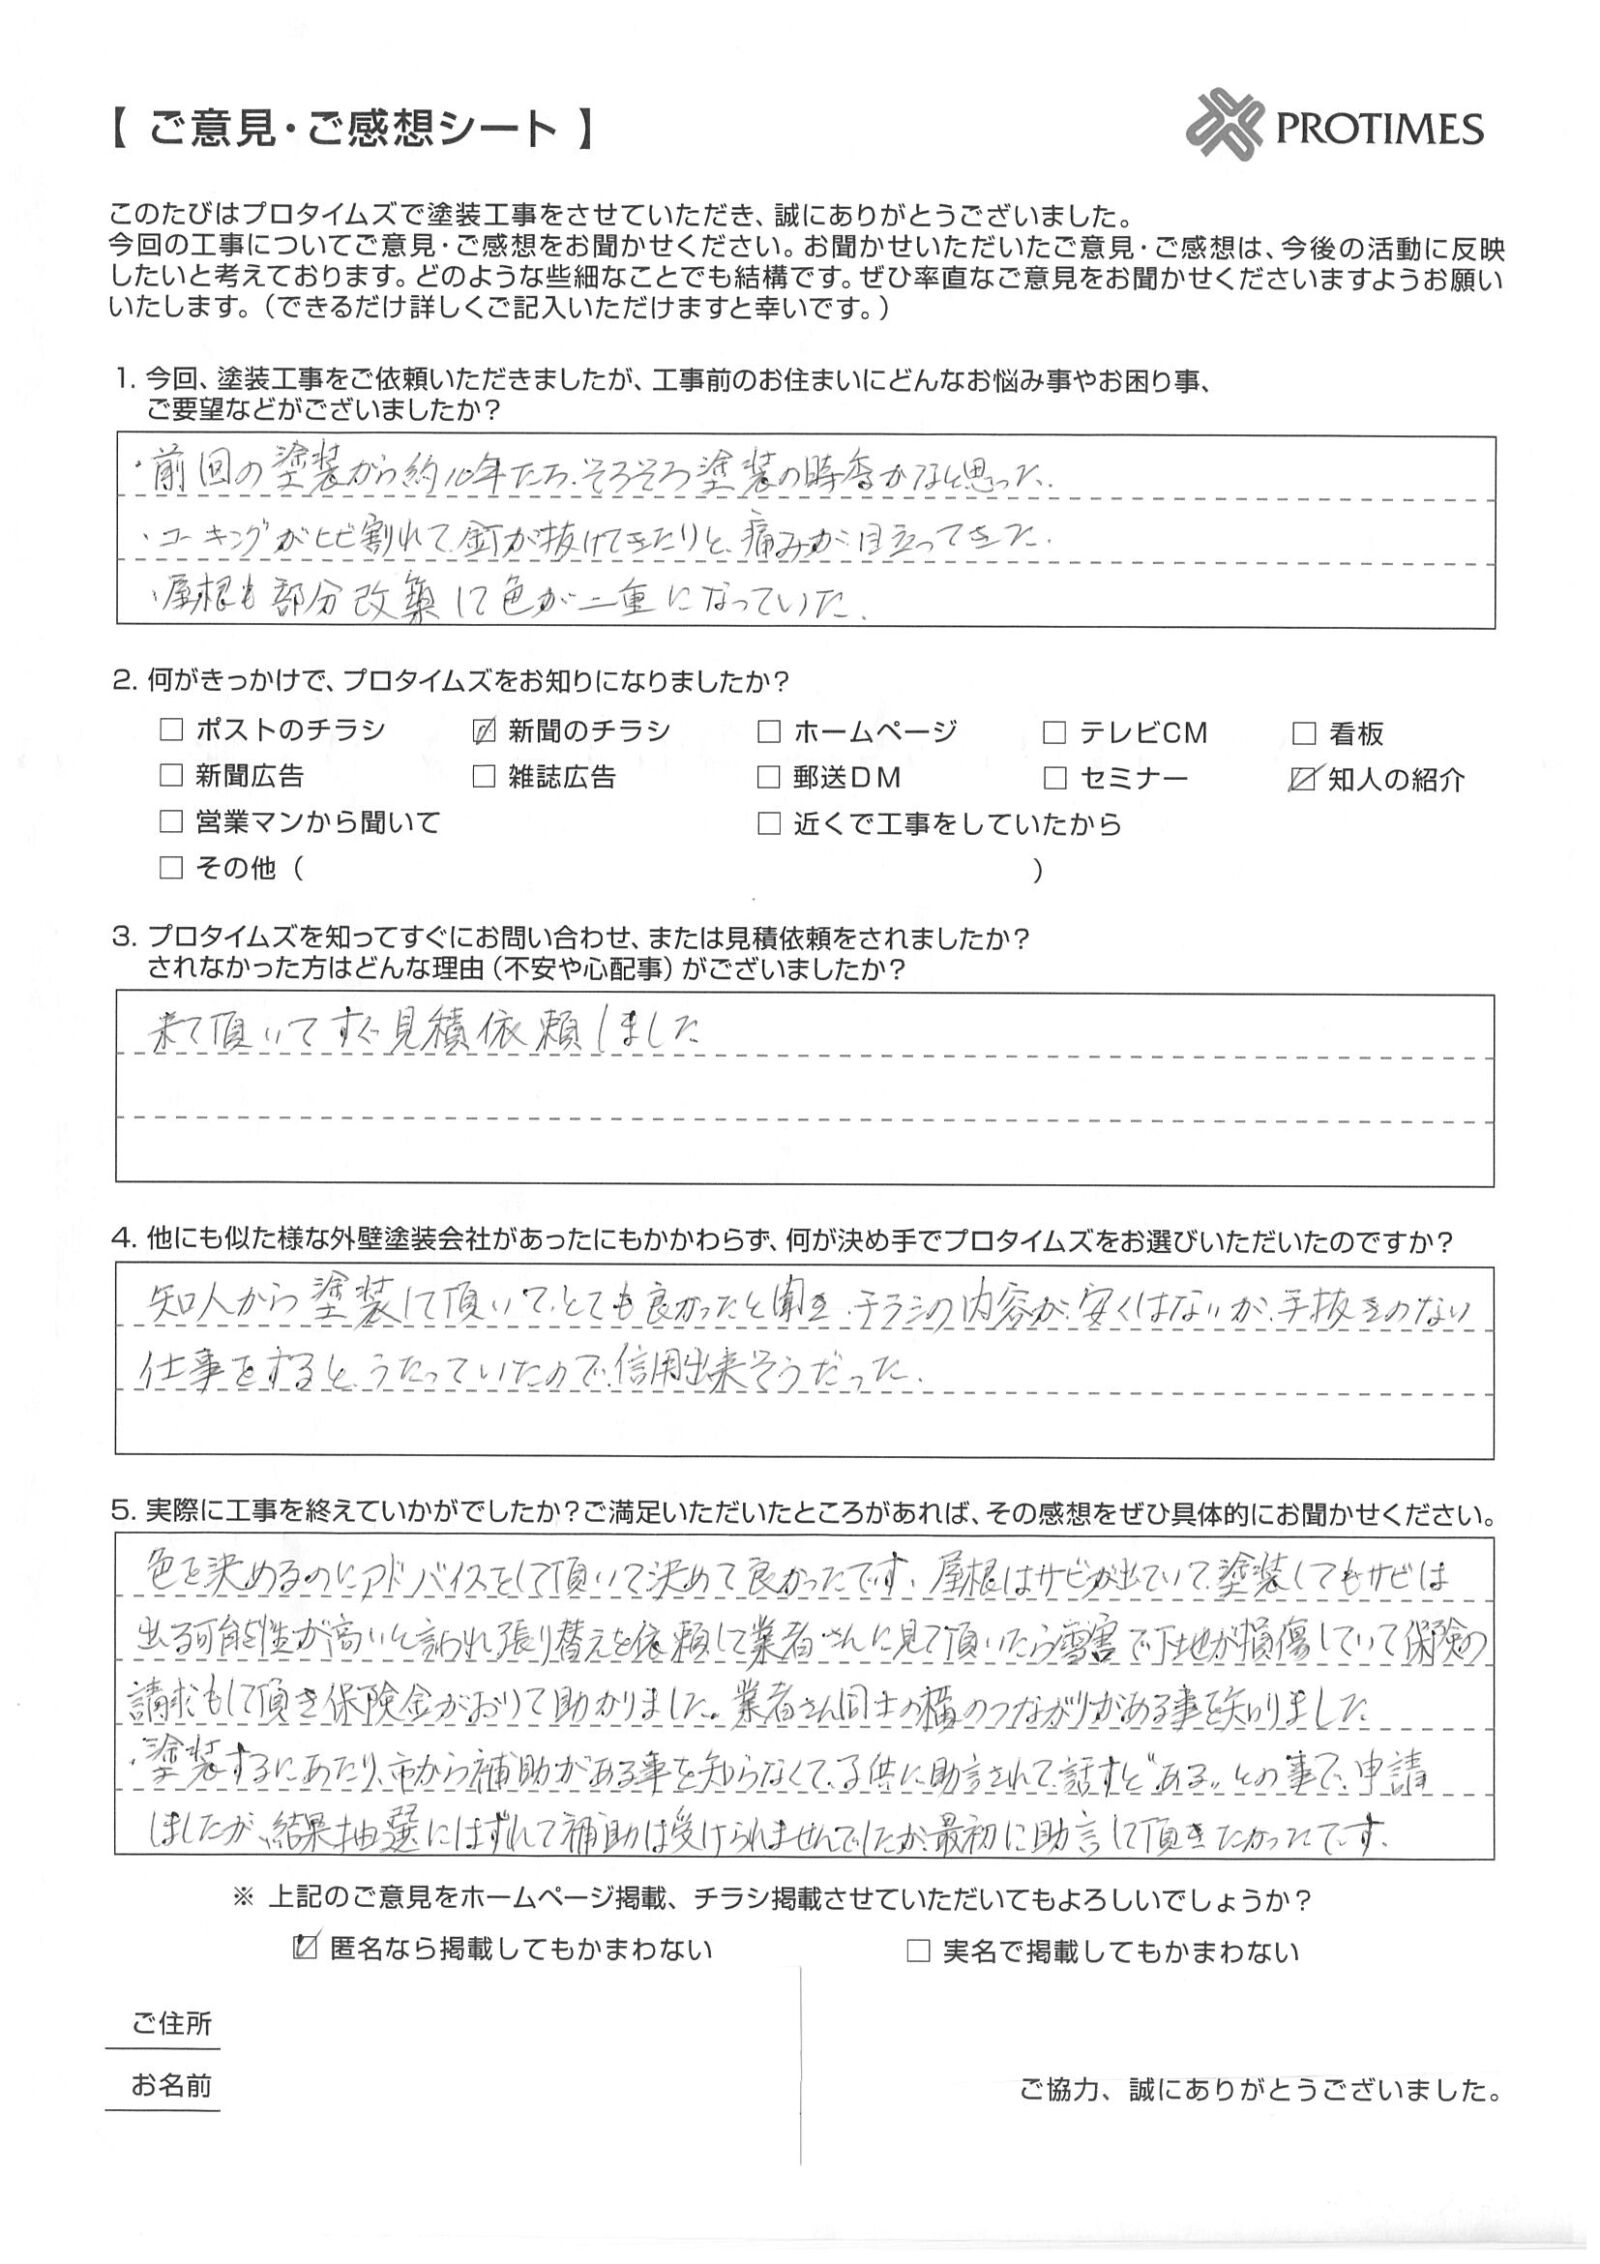 【 ご意見・ご感想シート 】
PROTIMES
このたびはプロタイムズで塗装工事をさせていただき、誠にありがとうございました。
今回の工事についてご意見・ご感想をお聞かせください。お聞かせいただいたご意見・ご感想は、今後の活動に反映
したいと考えております。どのような些細なことでも結構です。ぜひ率直なご意見をお聞かせくださいますようお願い
いたします。（できるだけ詳しくご記入いただけますと幸いです。）
1. 今回、塗装工事をご依頼いただきましたが、工事前のお住まいにどんなお悩み事やお困り事、
ご要望などがございましたか？
・前回の塗装から約10年たち、そろそろ塗装の時季かなと思った.
・コーキングがヒビ割れて、釘が抜けてきたりと、痛みが目立ってきた.
・屋根も部分改築して色が二重になっていた.
2. 何がきっかけで、プロタイムズをお知りになりましたか？
□ ポストのチラシ ☑ 新聞のチラシ □ ホームページ □ テレビCM □ 看板
□ 新聞広告 □ 雑誌広告 □ 郵送DM □ セミナー ☑ 知人の紹介
□ 営業マンから聞いて □ 近くで工事をしていたから
□ その他（ ）
3. プロタイムズを知ってすぐにお問い合わせ、または見積依頼をされましたか？
されなかった方はどんな理由（不安や心配事）がございましたか？
来て頂いてすぐ見積依頼しました
4. 他にも似た様な外壁塗装会社があったにもかかわらず、何が決め手でプロタイムズをお選びいただいたのですか？
知人から塗装して頂いて、とても良かったと聞き、チラシの内容が、安くはないが、手抜きのない
仕事をすると、うたっていたので、信用出来そうだった.
5. 実際に工事を終えていかがでしたか？ご満足いただいたところがあれば、その感想をぜひ具体的にお聞かせください。
色を決めるのにアドバイスをして頂いて決めて良かったです、屋根はサビが出ていて、塗装してもサビは
出る可能性が高いと言われ張り替えを依頼して業者さんに見て頂いたら雪害で下地が損傷していて保険の
請求もして頂き保険金がおりて助かりました。業者さん同士の横のつながりがある事を知りました
・塗装するにあたり、市から補助がある事を知らなくて、子供に助言されて、話すと〝ある〟との事で、申請
しましたが、結果抽選にはずれて補助は受けられませんでしたが、最初に助言して頂きたかったです、
※ 上記のご意見をホームページ掲載、チラシ掲載させていただいてもよろしいでしょうか？
☑ 匿名なら掲載してもかまわない □ 実名で掲載してもかまわない
ご住所
お名前
ご協力、誠にありがとうございました。